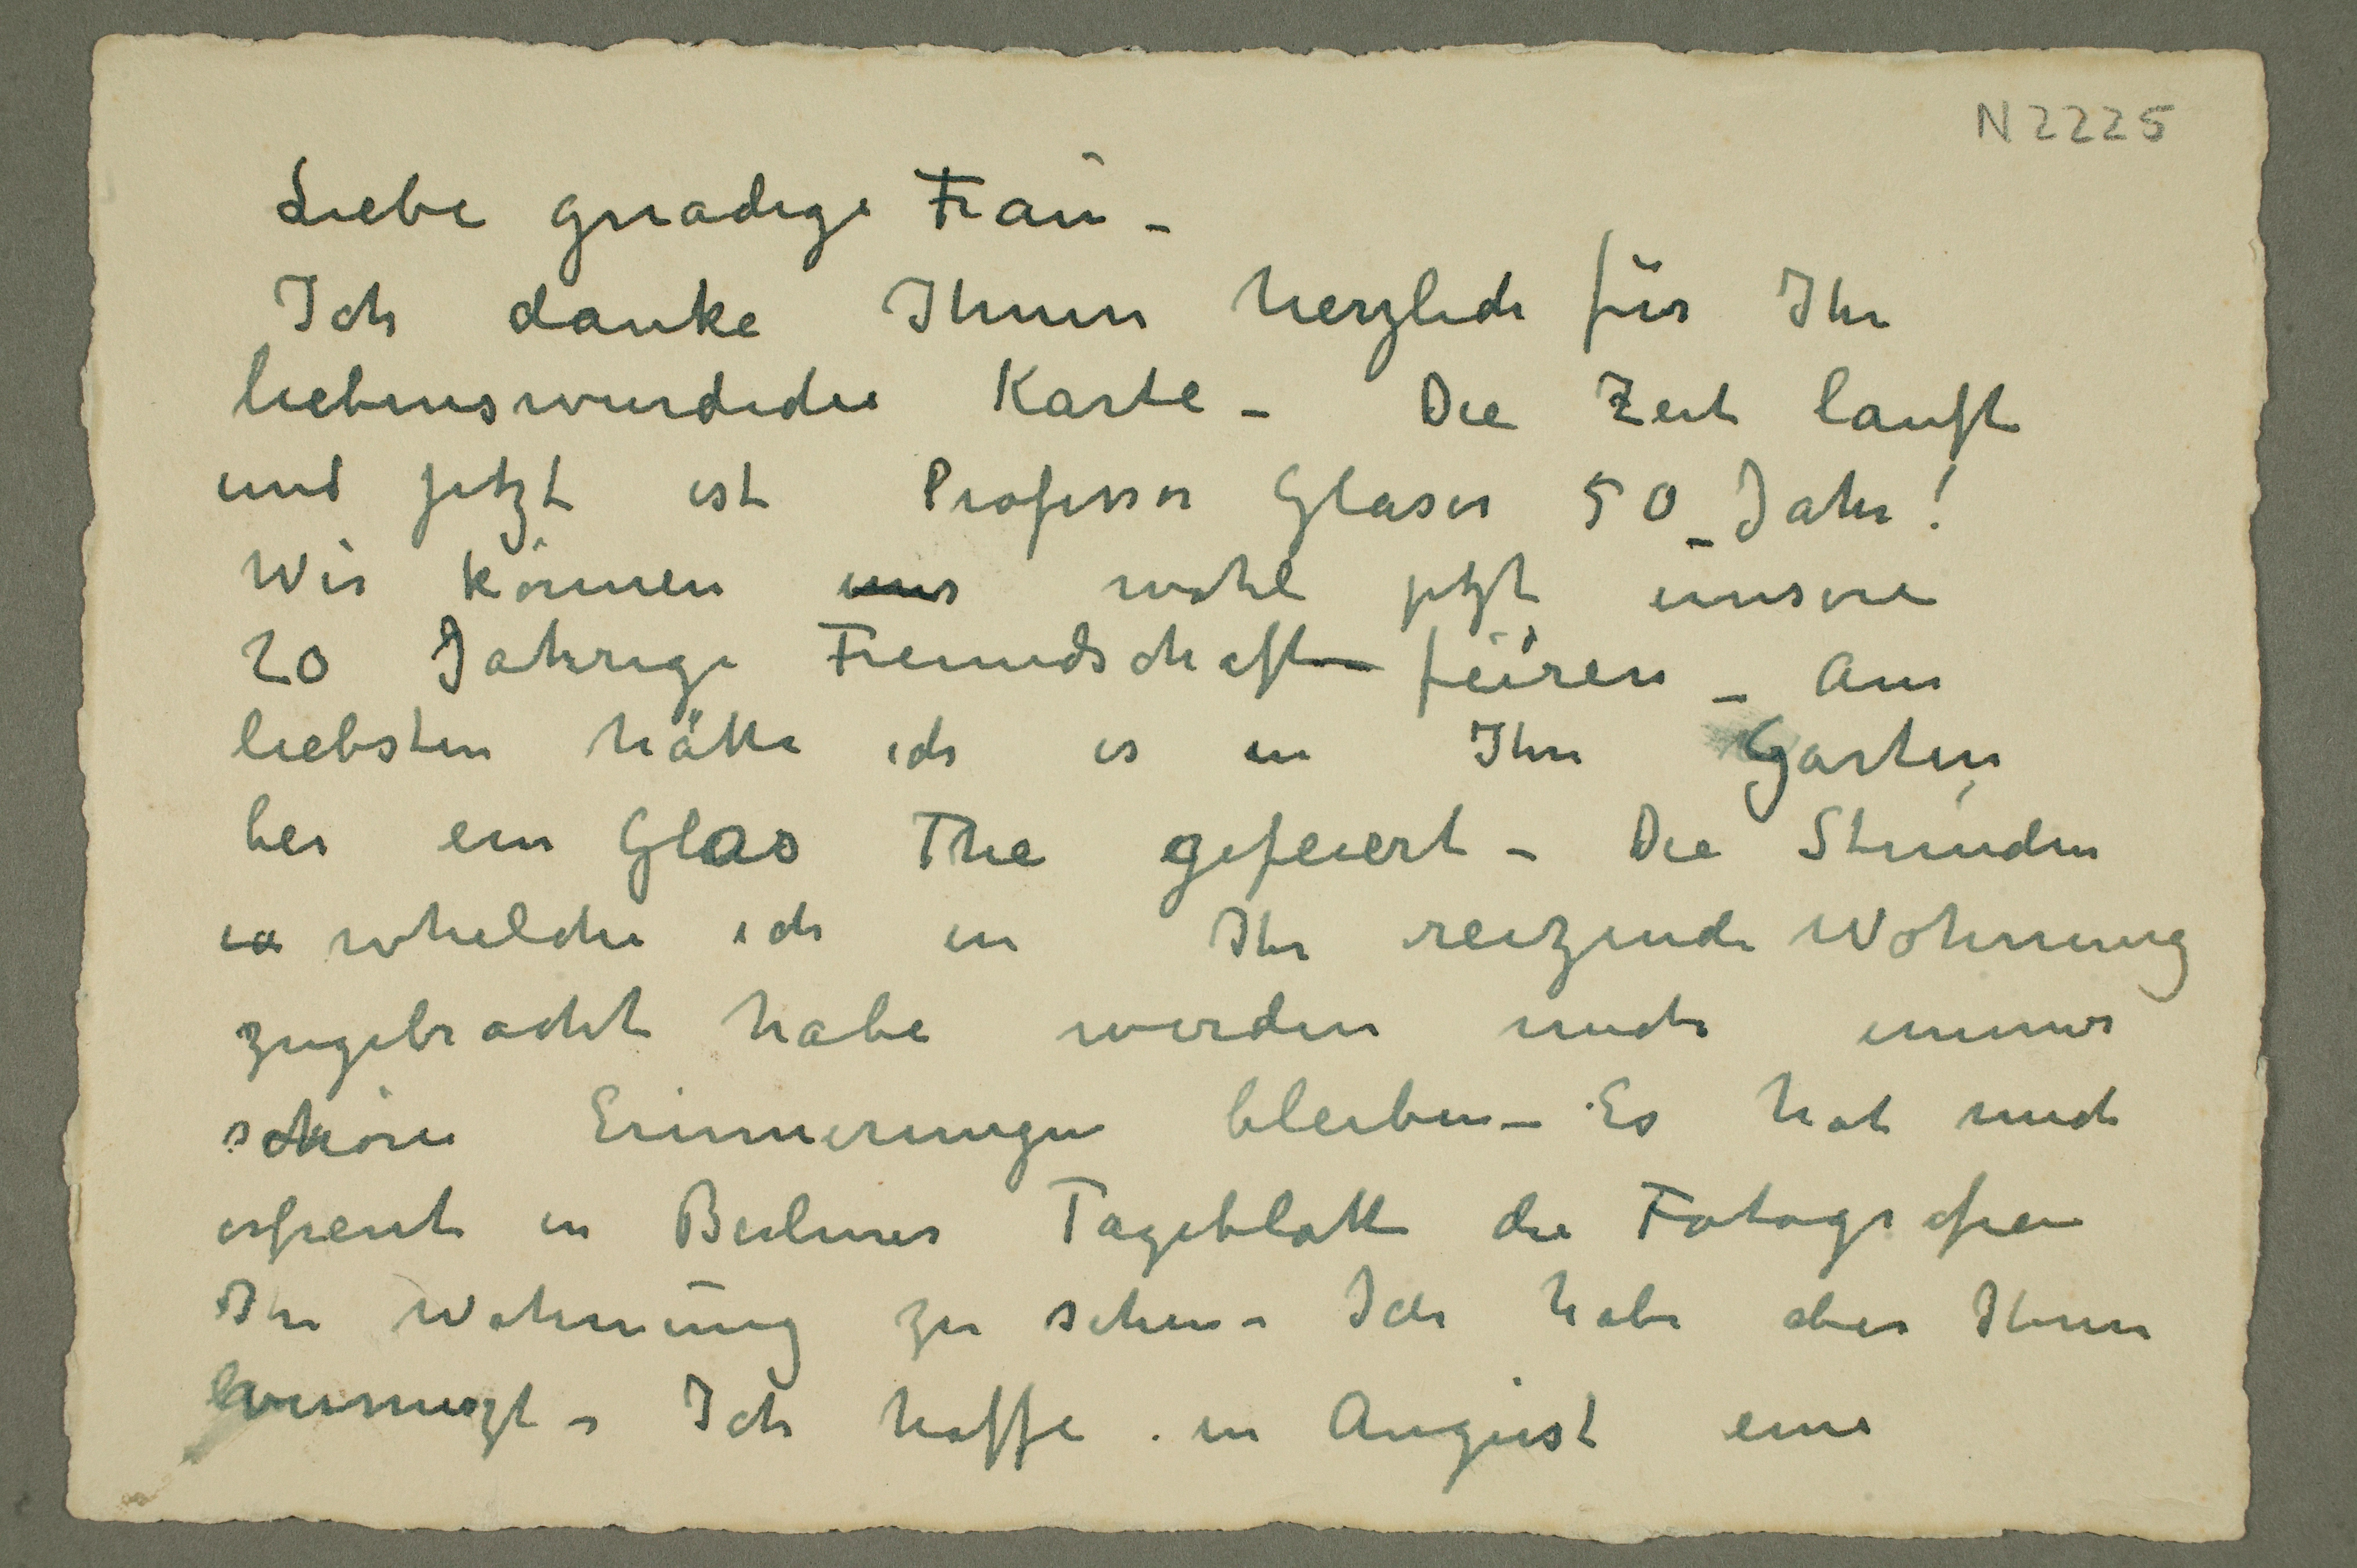 N 2225
Liebe gnadige Frau –
Ich danke Ihnen herzlich für Ihr
liebenswurdiche Karte – Die Zeit lauft
und jetzt ist Professor Glaser 50 Jahr!
Wir können uns wohl jetzt unsere
20 Jahrige Freundschaft feiren – Am
liebsten hätte ich es in Ihr Garten
bei ein Glas The gefeiert – Die Stunden
in whelche ich in Ihr reizende Wohnung
zugebracht habe werden mich immer
schöne Erinnerungen bleiben – Es hat mich
erfreut in Berliner Tageblatt die Fotografien
Ihr Wohnung zu sehen – Ich habe aber Ihnen
vermiszt – Ich hoffe in August eine